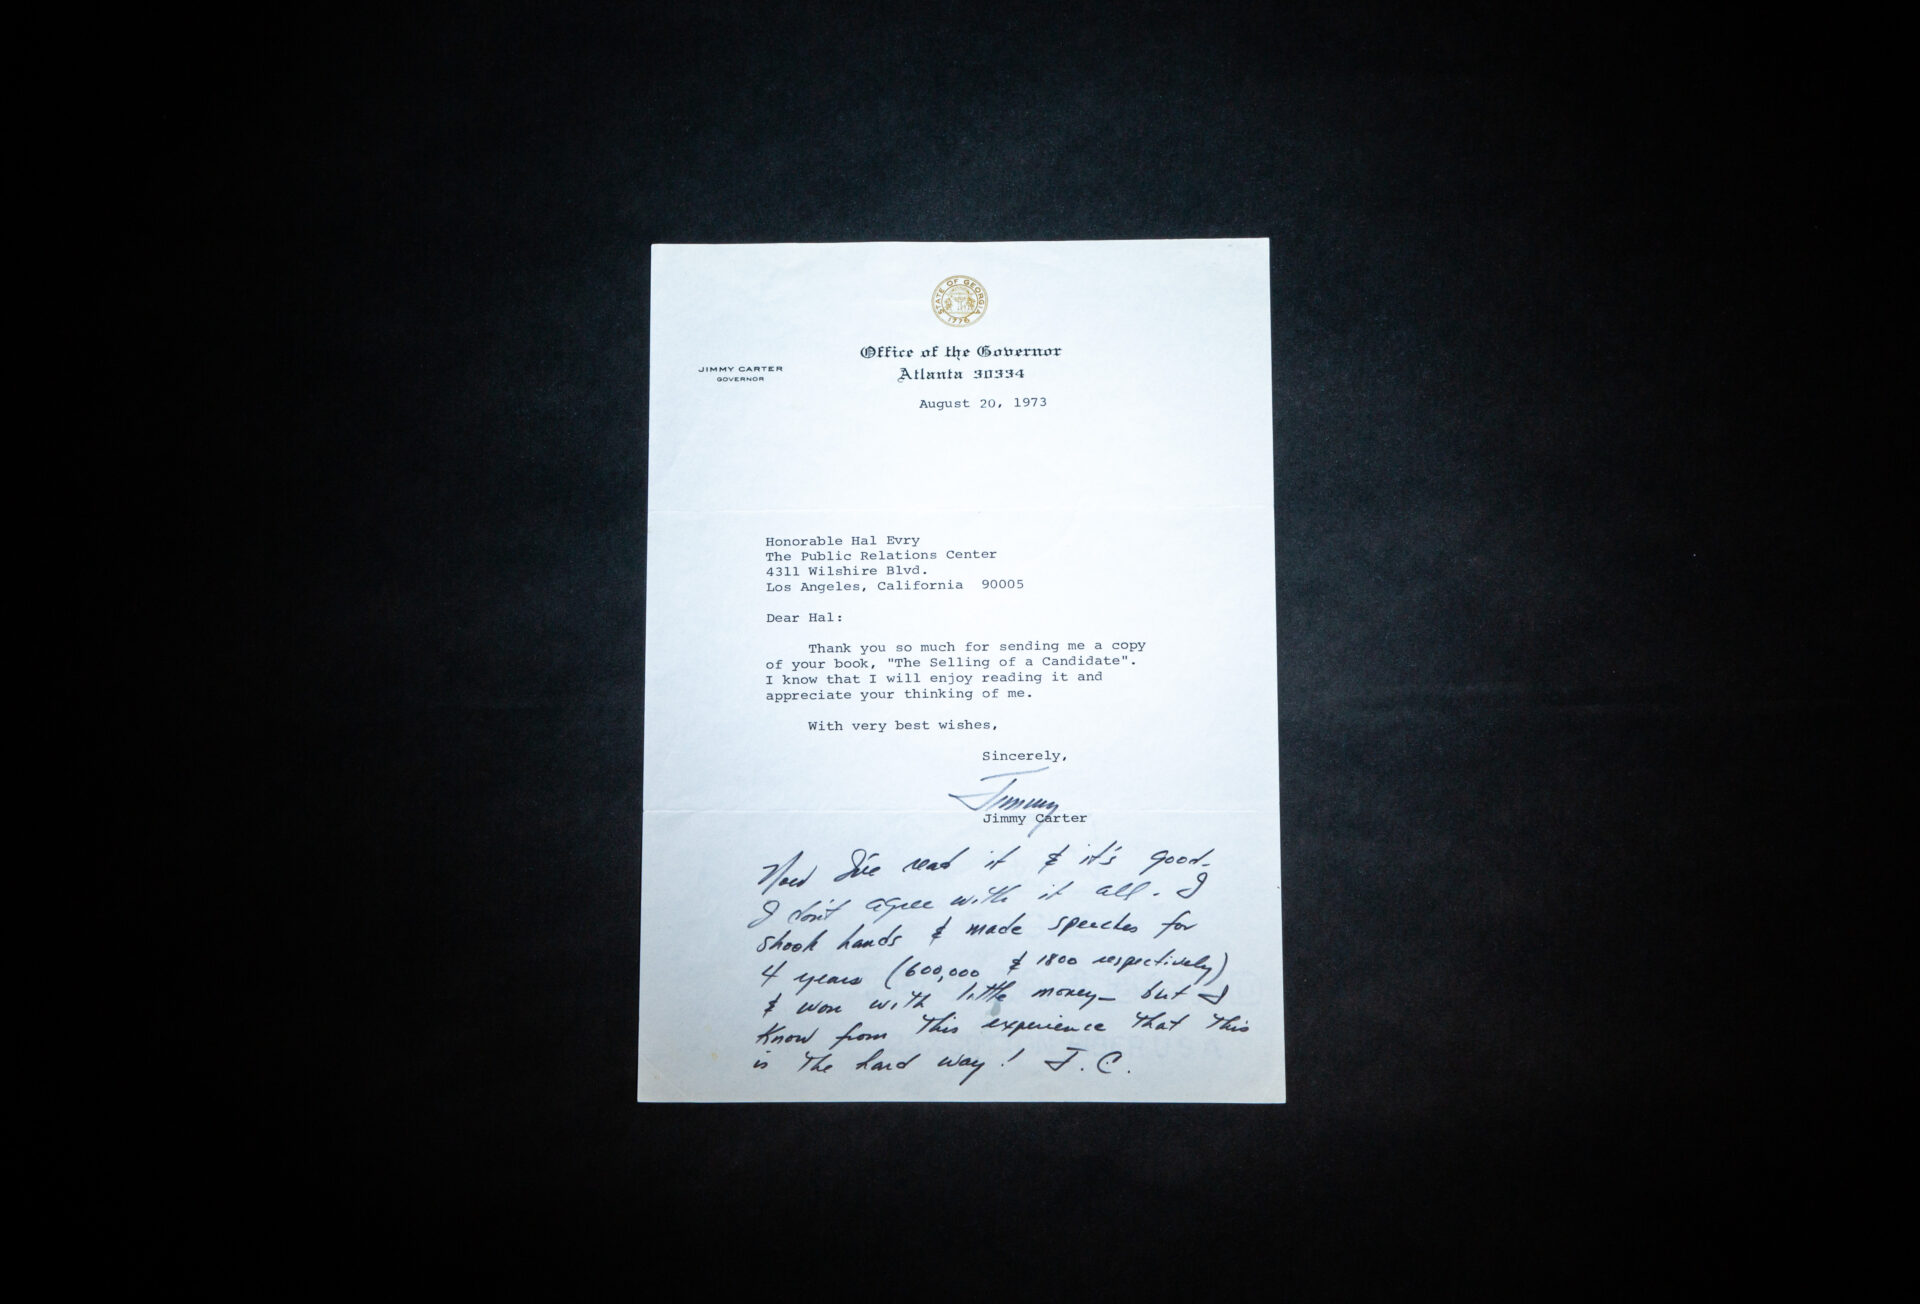 STATE OF GEORGIA
1776
Office of the Governor
Atlanta 30334
JIMMY CARTER
GOVERNOR
August 20, 1973
Honorable Hal Evry
The Public Relations Center
4311 Wilshire Blvd.
Los Angeles, California 90005
Dear Hal:
Thank you so much for sending me a copy
of your book, "The Selling of a Candidate".
I know that I will enjoy reading it and
appreciate your thinking of me.
With very best wishes,
Sincerely,
Jimmy
Jimmy Carter
Now I've read it & it's good-
I don't agree with it all. I
shook hands & made speeches for
4 years (600,000 & 1800 respectively)
& won with little money- but I
know from this experience that this
is the hard way! J.C.